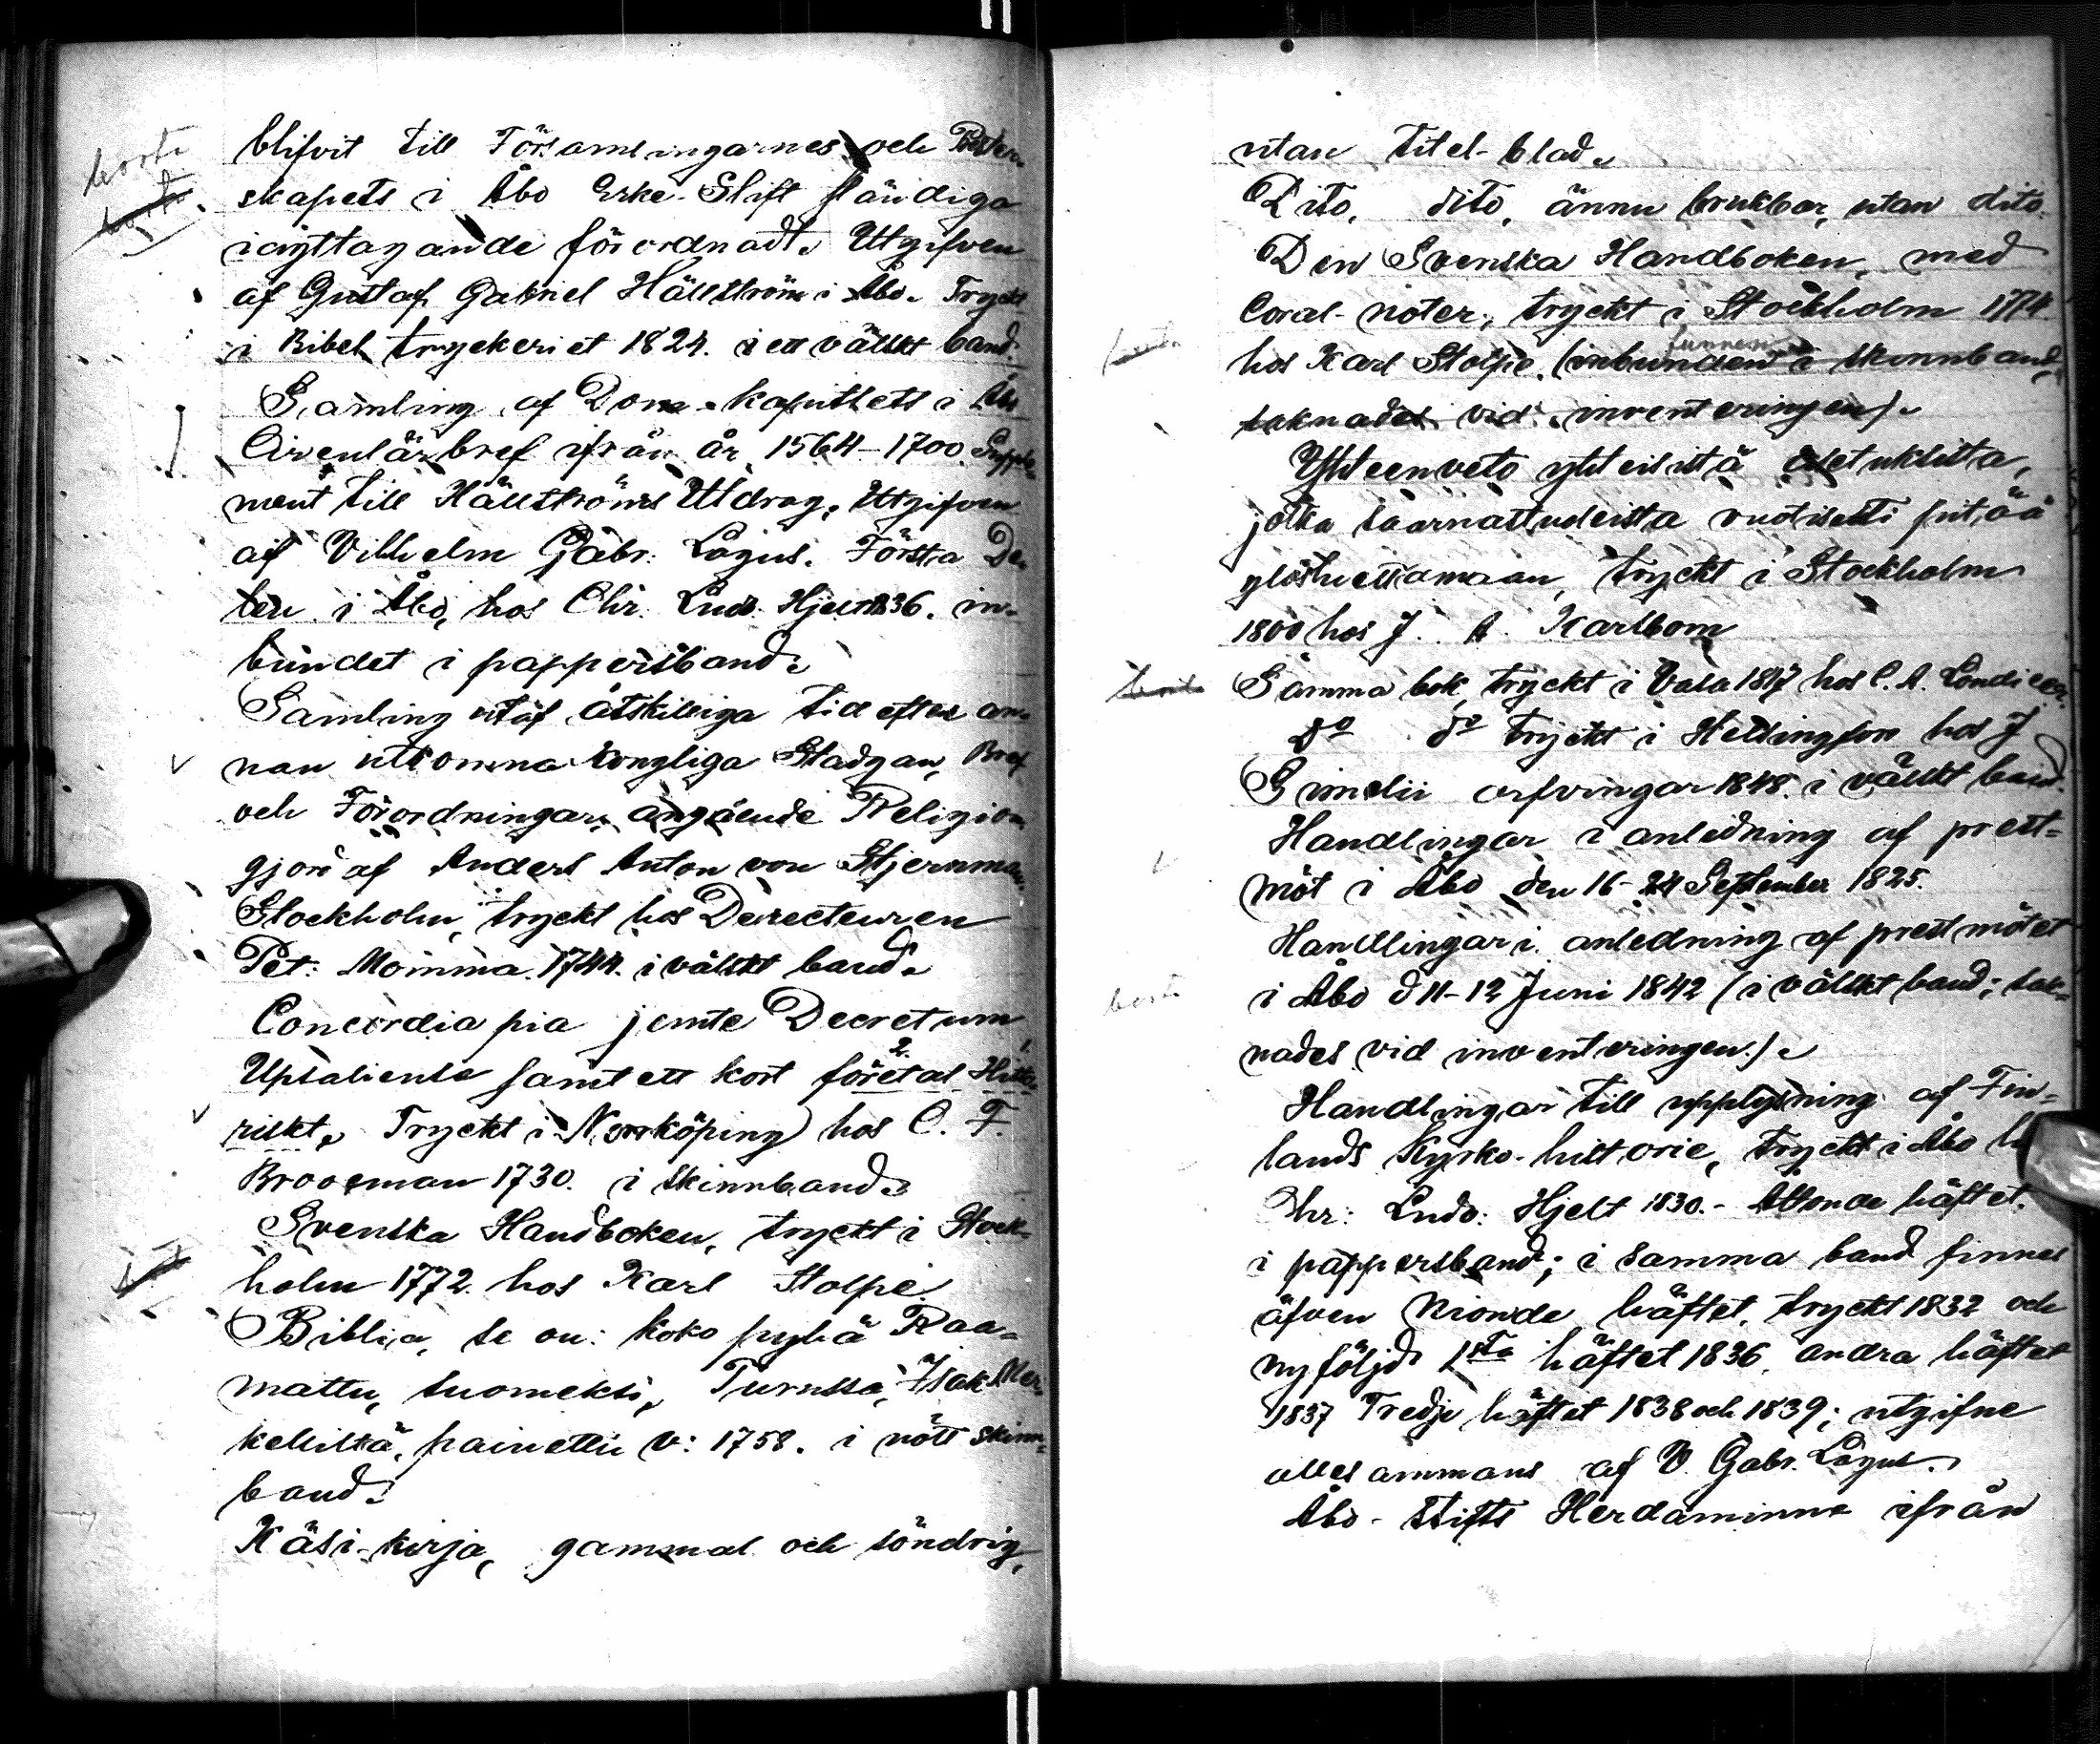 borta
borta
blifvit till Församlingarnes och Prester-
skapets i Åbo Erke-Stift ständiga
iagttagande förordnadt. Utgifven
af Gustaf Gabriel Hällström i Åbo. Tryckt
i Bibel tryckeriet 1824. i ett vällskt band.
Samling af Dom-kapittlets i Åbo
Circulärbref ifrån år 1564-1700. Supple-
ment till Hällströms Utdrag. Utgifven
af Vilhelm Gabr: Lagus. Första De-
len i Åbo, hos Chr. Lud. Hjelt 1836. in-
bundet i pappersband.
Samling utaf åtskilliga tid efter an-
nan utkomna kongliga Stadgar, Bref
och Förordningar angående Religion
gjord af Anders Anton von Stjernman.
Stockholm, tryckt hos Directeuren
Pet: Momma. 1744. i vällskt band.
Concordia pia jemte Decretum
Upsaliense samt ett kort företal Histo-
riskt. Tryckt i Norrköping hos C. F.
Brooeman 1730. i skinnband.
Svenska Handboken, tryckt i Stock-
holm 1772. hos Karl Stolpe.
Biblia, se on: koko pyhä Raa-
mattu, suomeksi, Turussa, Isak Mer-
keliltä, painettu v: 1758. i nött skinn-
band.
Käsi-kirja, gammal och söndrig,
utan Titel-blad.
Dito, dito, ännu brukbar, utan dito.
Den Svenska Handboken, med
Coral-noter, tryckt i Stockholm 1774.
funnen
hos Karl Stolpe. (inbunden i skinnband,
saknades vid inventeringen).
Yhteenveto yhteisistä asetuksista,
jotka saarnastuoleista vuotisesti pitää
ylösluettamaan, tryckt i Stockholm
1800 hos J. A. Karlbom
borta
Samma bok, tryckt i Vasa 1817 hos C. A. Londicer.
do do tryckt i Helsingfors hos J
Simelii arfvingar 1848. i vällskt band.
Handlingar i anledning af prest-
möt i Åbo den 16-24 September 1825.
Handlingar i anledning af prestmötet
borta
i Åbo d 11-12 Juni 1842 (i vällskt band; sak-
nades vid inventeringen).
Handlingar till upplysning af Fin-
lands Kyrko-historie, tryckt i Åbo
Chr: Ludv: Hjelt 1830.- Attonde häftet.
i pappersband; i samma band finnes
äfven Nionde häftet, tryckt 1832 och
ny följd 1sta häftet 1836, andra häftet
1837 Tredje häftet 1838 och 1839; utgifne
allesammans af V. Gabr. Lagus.
Åbo-Stifts Herdaminne ifrån